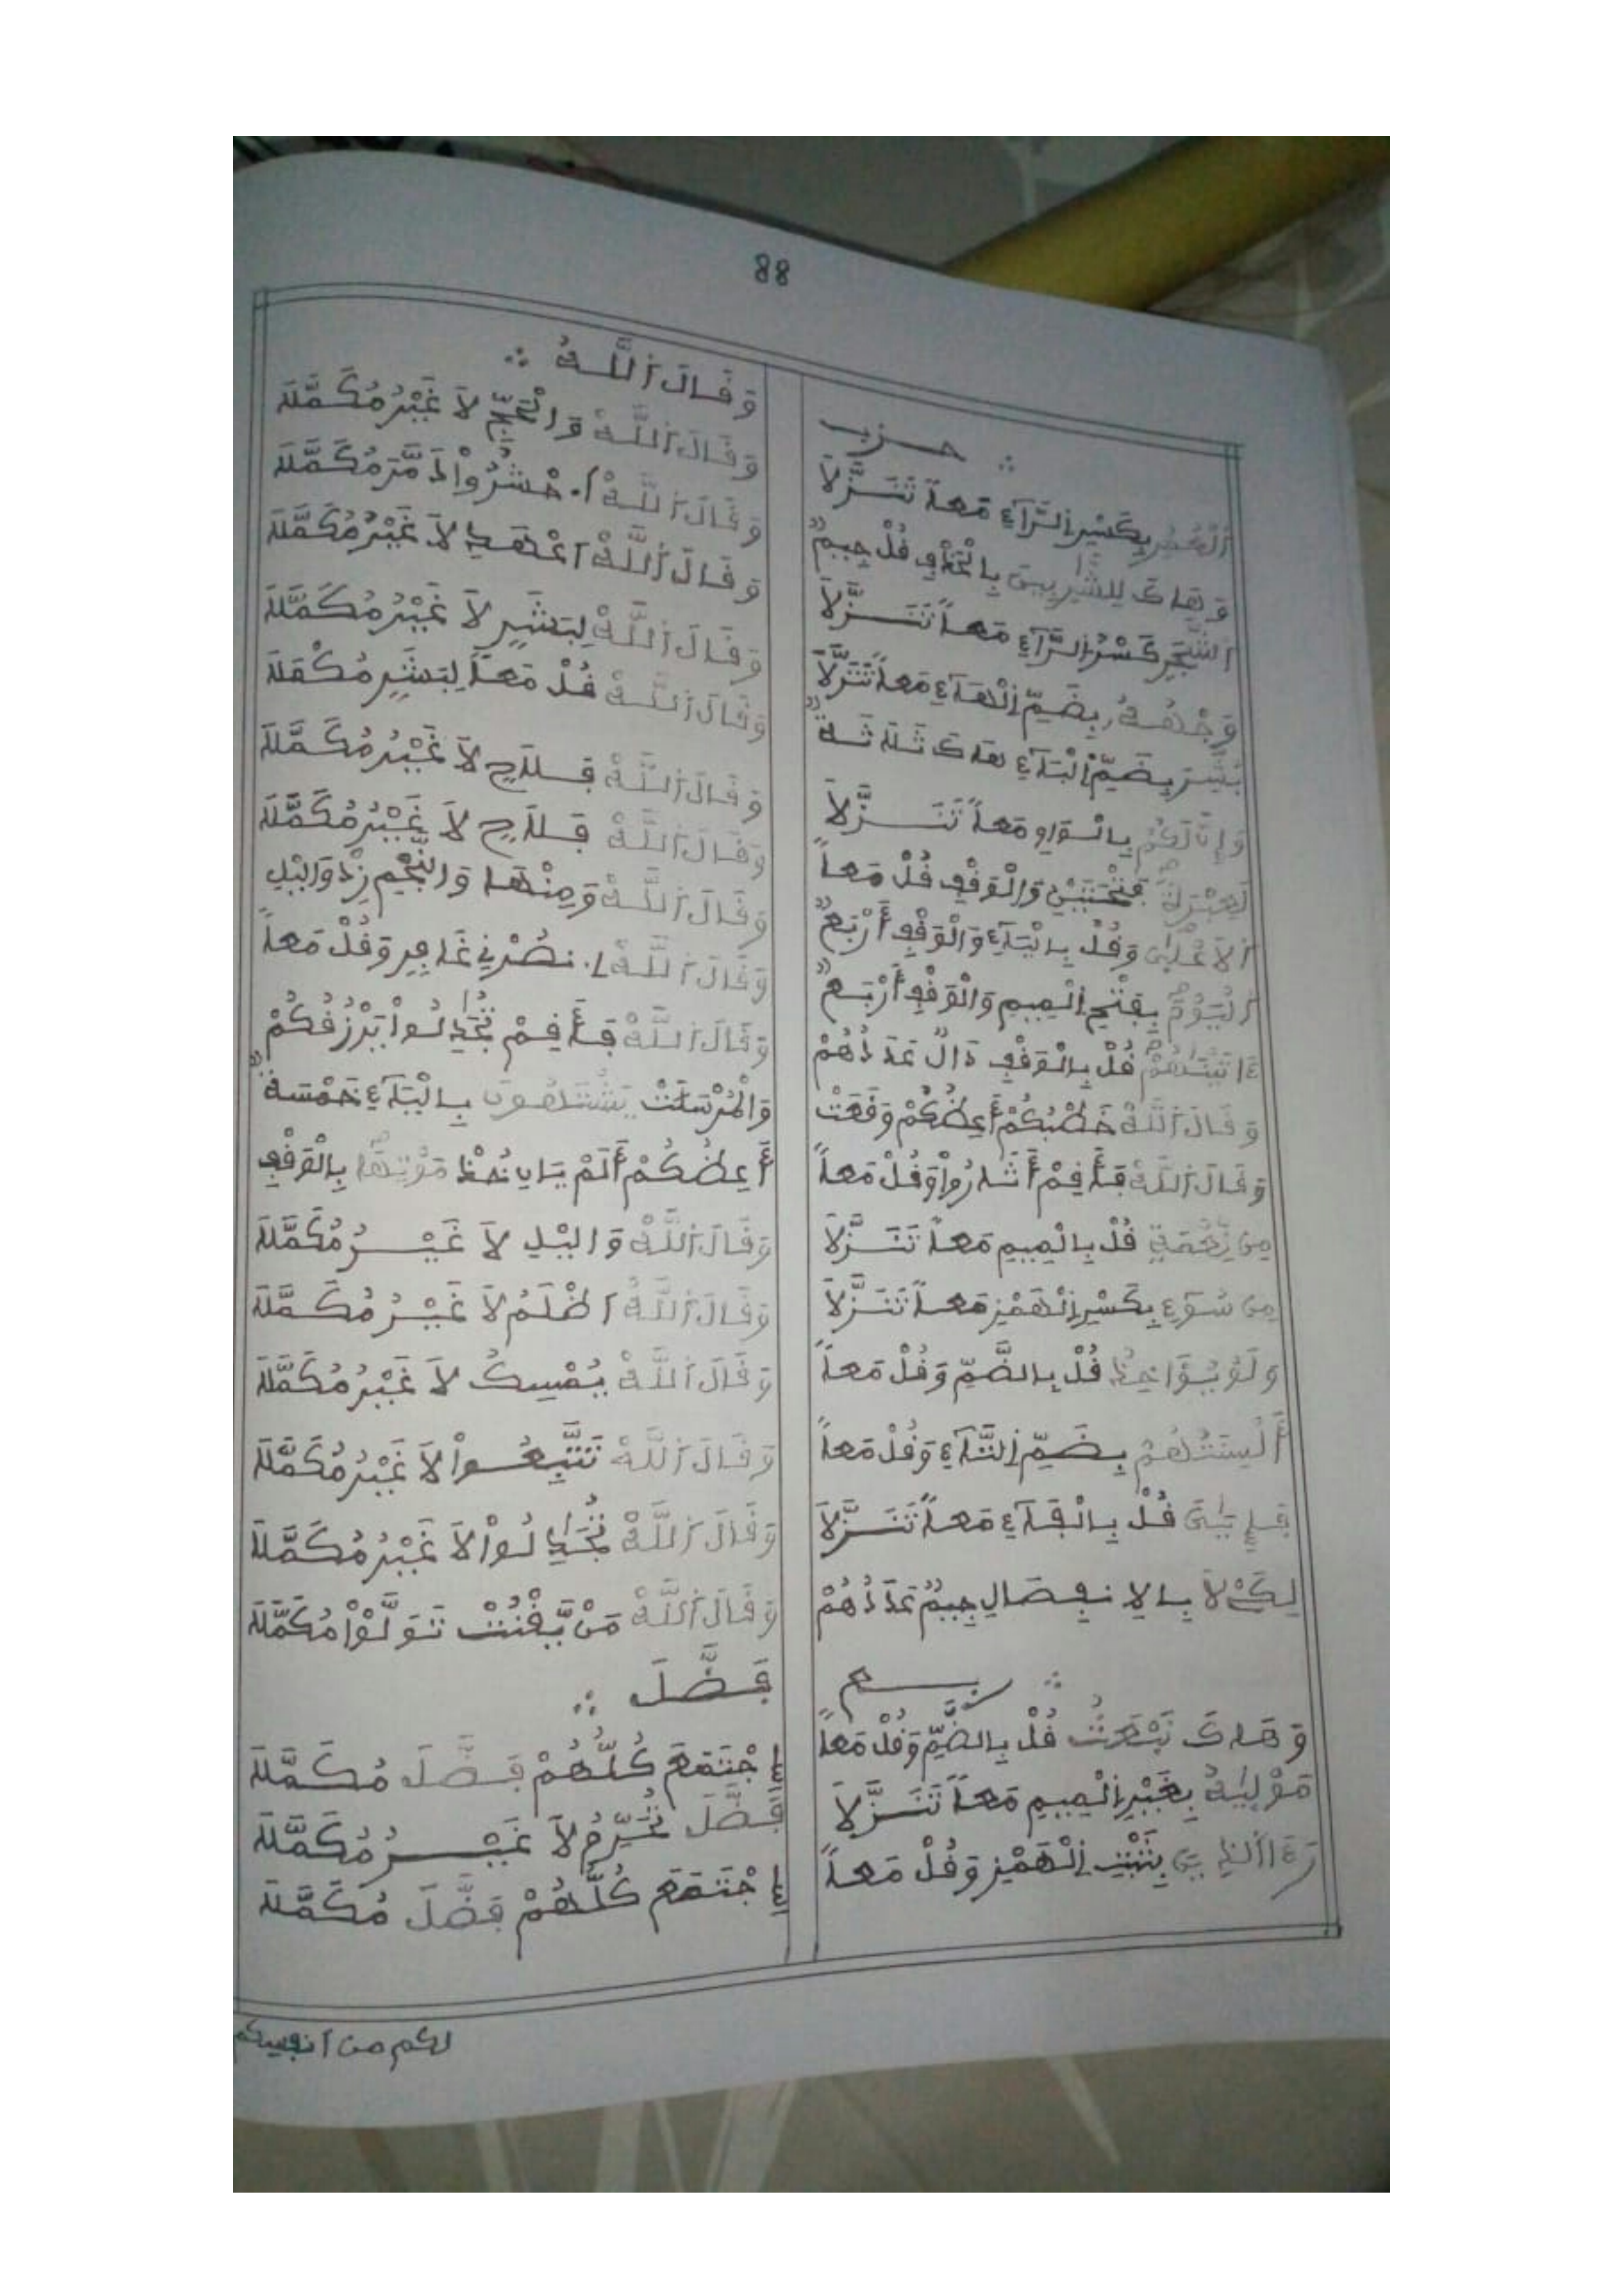 88
حزب ∴
اَلْعُمُرِ بِكَسْرِ اِلرَّآءِ مَعاً تَنَزَّلاَ
وَهَاكَ لِلشَّٰرِبِينَ بِالْخَافِ فُلْ جِيمٌ
اَلشَّجَرِ كَسْرُ اِلرَّآءِ مَعاً تَنَزَّلاَ
وَجْهُهُۥ بِضَمِّ اِلْهَآءِ مَعاً تَنَزَّلاَ
بِضَمِّ اِلْبَآءِ هَاكَ ثَلَاثَةٌ
وَإِنَّ لَكُمْ بِالْوَاوِ مَعاً تَنَزَّلاَ
لَعِبْرَةٗ بِفَتْحَتَيْنِ وَالْوَفْفِ فُلْ مَعاً
اَلاَعْلَىٰ وَفُلْ بِالْيَآءِ وَالْوَفْفِ أَرْبَعٌ
اَلْيَوْمَ بِفَتْحِ اِلْمِيمِ وَالْوَفْفِ أَرْبَعٌ
ءَاتَيْنَٰهُمْ فُلْ بِالْوَفْفِ دَالٌ عَدَدُهُمْ
وَفَالَ اَللَّهُ خَطْبُكُمْ أَعِظُكُمْ وَفَعَتْ
وَفَالَ اَللَّهُ فَأَفِمْ أَثَارُواْ وَفُلْ مَعاً
مِن نِّعْمَةٖ فُلْ بِالْمِيمِ مَعاً تَنَزَّلاَ
مِن سُوٓءٖ بِكَسْرِ اِلْهَمْزِ مَعاً تَنَزَّلاَ
وَلَوْ يُوَاخِذُ فُلْ بِالضَّمِّ وَفُلْ مَعاً
أَلْسِنَتُهُمْ بِضَمِّ اِلتَّآءِ وَفُلْ مَعاً
فَإِيَّٰىَ فُلْ بِالْفَآءِ مَعاً تَنَزَّلاَ
لِكَےْ لاَ بِالاِنفِصَالِ جِيمٌ عَدَدُهُمْ
ربع ∴
وَهَاكَ نَبْعَثُ فُلْ بِالضَّمِّ وَفُلْ مَعاً
مَوْلَىٰهُ بِغَيْرِ اِلْمِيمِ مَعاً تَنَزَّلاَ
رَءَا اَلذِينَ بِثَبْتِ اِلْهَمْزِ وَفُلْ مَعاً
وَفَالَ اَللَّهُ ∴
وَفَالَ اَللَّهُ وَالْحَجِّ لاَ غَيْرُ مُكَمَّلَهْ
وَفَالَ اَللَّهُ حُشْرُواْ مُكَمَّلَهْ
وَفَالَ اَللَّهُ اَعْهَدِ لاَ غَيْرُ مُكَمَّلَهْ
وَفَالَ اَللَّهُ لِبَشَرٍ لاَ غَيْرُ مُكَمَّلَهْ
وَفَالَ اَللَّهُ فُلْ مَعاً لِبَشَرٍ مُكْمَلَهْ
وَفَالَ اَللَّهُ فَسَلَٰحٍ لاَ غَيْرُ مُكَمَّلَهْ
وَفَالَ اَللَّهُ فَسَلَٰحٍ لاَ غَيْرُ مُكَمَّلَهْ
وَفَالَ اَللَّهُ وَمِنْهَا وَالنَّجْمِ زِدْ وَالَيْلِ
وَفَالَ اَللَّهُ نصْرِنِے غَافِرٍ وَفُلْ مَعاً
وَفَالَ اَللَّهُ فَأَفِمْ تُجَٰدِلُواْ يَرْزُفُكُمْ
وَالْمُرْسَلَتْ يَشْتَهُونَ بِالْيَآءِ خَمْسَةٌ
أَعِظُكُمْ أَلَمْ يَانِ نُحْفَظْ مَوْتِهَا بِالْوَفْفِ
وَفَالَ اَللَّهُ وَالَيْلِ لاَ غَيْرُ مُكَمَّلَهْ
وَفَالَ اَللَّهُ اَظْلَمُ لاَ غَيْرُ مُكَمَّلَهْ
وَفَالَ اَللَّهُ يُمْسِكُ لاَ غَيْرُ مُكَمَّلَهْ
وَفَالَ اَللَّهُ تَتَّبِعُواْ لاَ غَيْرُ مُكَمَّلَهْ
وَفَالَ اَللَّهُ تُجَٰدِلُواْ لاَ غَيْرُ مُكَمَّلَهْ
وَفَالَ اَللَّهُ مَنْ يَّفْنُتْ تَوَلَّوْاْ مُكَمَّلَهْ
فَضَّلَ ∴
اِجْتَمَعَ كُلُّهُمْ فَضَّلَ مُكَمَّلَهْ
فَضَّلَ تُحَرِّمُ لاَ غَيْرُ مُكَمَّلَهْ
اِجْتَمَعَ كُلُّهُمْ فَضَّلَ مُكَمَّلَهْ
لكم من أنفسكم